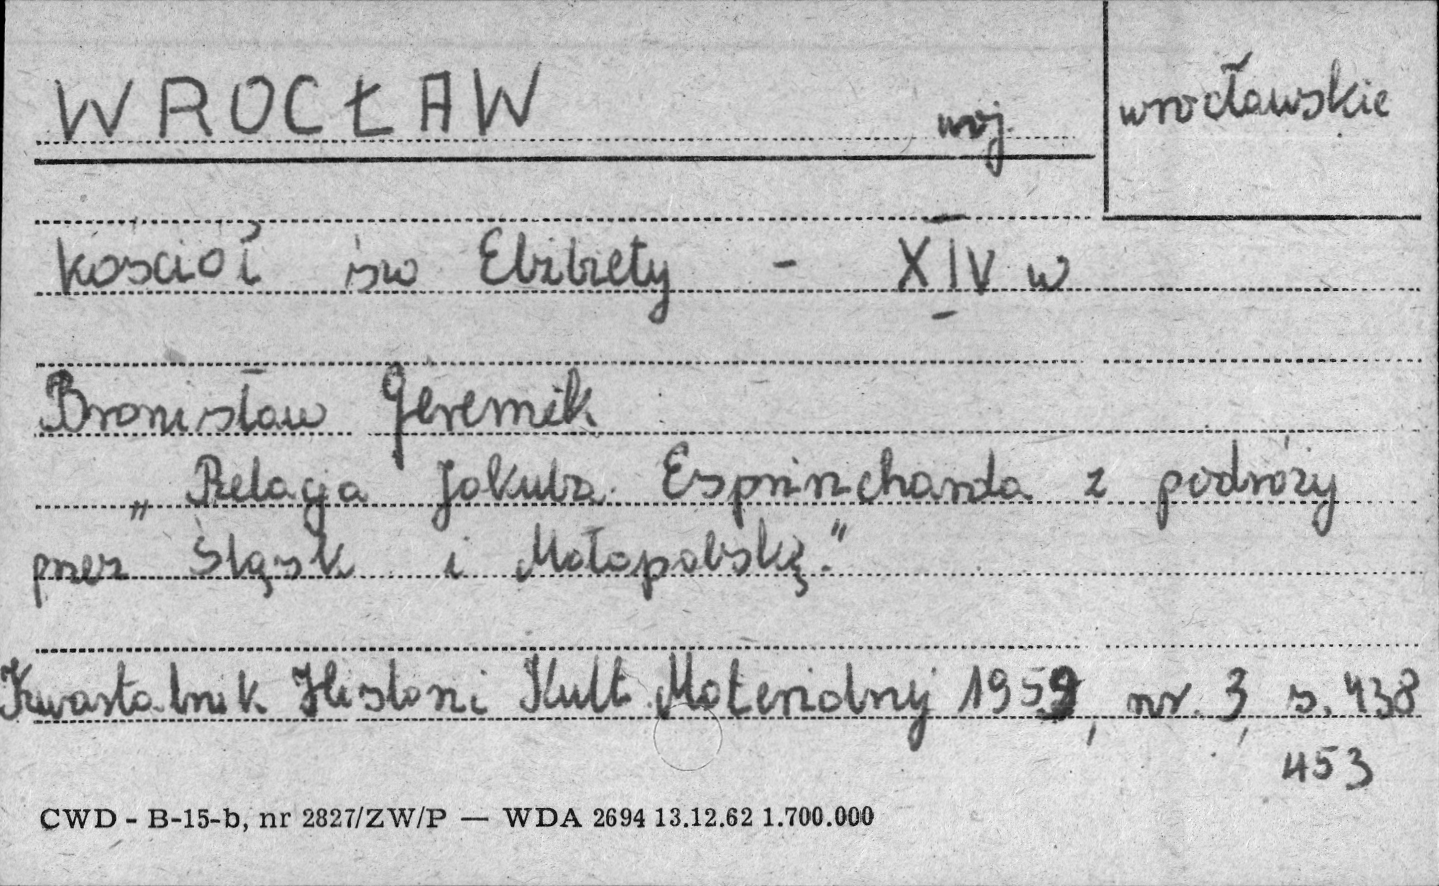 WROCŁAW woj. wrocławskie
kościół św Elżbiety - XIV w
Bronisław Geremek
„Relacja Jakuba Esprincharda z podróży
przez Śląsk i Małopolskę."
Kwartalnik Historii Kult. Materialnej 1959, nr. 3, s. 438
453
CWD - B-15-b, nr 2827/ZW/P — WDA 2694 13.12.62 1.700.000